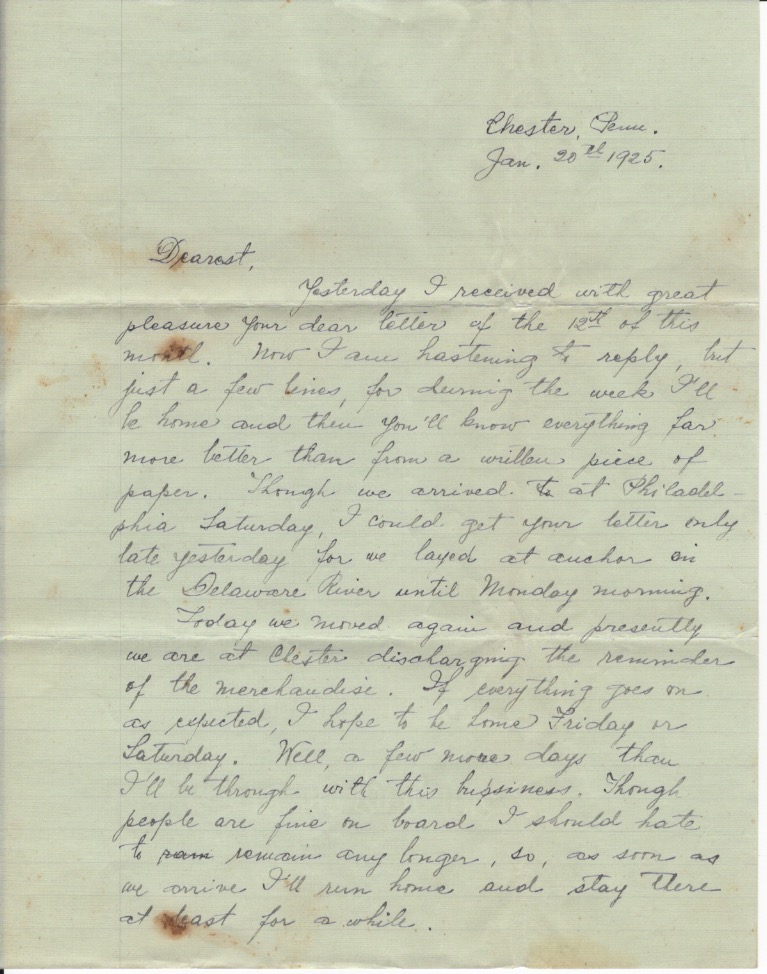 Chester, Penn.
Jan. 20th 1925.
Dearest,
Yesterday I received with great
pleasure your dear letter of the 12th of this
month. Now I am hastening to reply, but
just a few lines, for during the week I'll
be home and then you'll know everything far
more better than from a written piece of
paper. Though we arrived to at Philadel-
phia Saturday, I could get your letter only
late yesterday for we layed at anchor in
the Delaware River until Monday morning.
Today we moved again and presently
we are at Chester discharging the reminder
of the merchandise. If everything goes on
as expected, I hope to be home Friday or
Saturday. Well, a few more days than
I'll be through with this business. Though
people are fine on board I should hate
to ram remain any longer, so, as soon as
we arrive I'll run home and stay there
at least for a while.